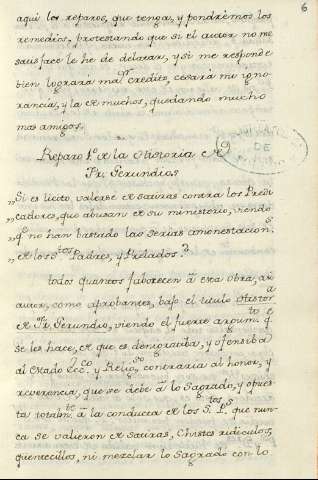 6
aqui los reparos, que tenga, y pondrémos los
remedios, protestando que si el autor no me
satisface le he de delatar, y si me responde
bien logrará maᵒʳ credito, cesará mi igno-
rancia, y la de muchos, quedando mucho
mas amigos.
Reparo 1.º de la Historia de
Fr. Gerundio
„Si es licito valerse de satiras contra los Predi-
„cadores, que abusan de su ministerio, viendo
„qᵉ no han bastado las serias amonestacion.ˢ
„de los S.ᵗᵒˢ Padres, y Prelados?
Todos quantos faborecen á esta obra, asi
autor, como aprobantes, bajo el titulo Histor.ᵃ
de Fr. Gerundio, viendo el fuerte argum.ᵗᵒ qᵉ
se les hace, de que es denigratiba, y ofensiba
al Estado Ecc.ᶜᵒ y Relig.ˢᵒ, contraria al honor, y
reverencia, que se debe á lo Sagrado, y opues-
ta totalm.ᵗᵉ á la conducta de los S.ᵗᵒˢ P.ˢ que nun-
ca se valieron de satiras, Chistes ridiculos,
quentecillos, ni mezclar lo Sagrado con lo